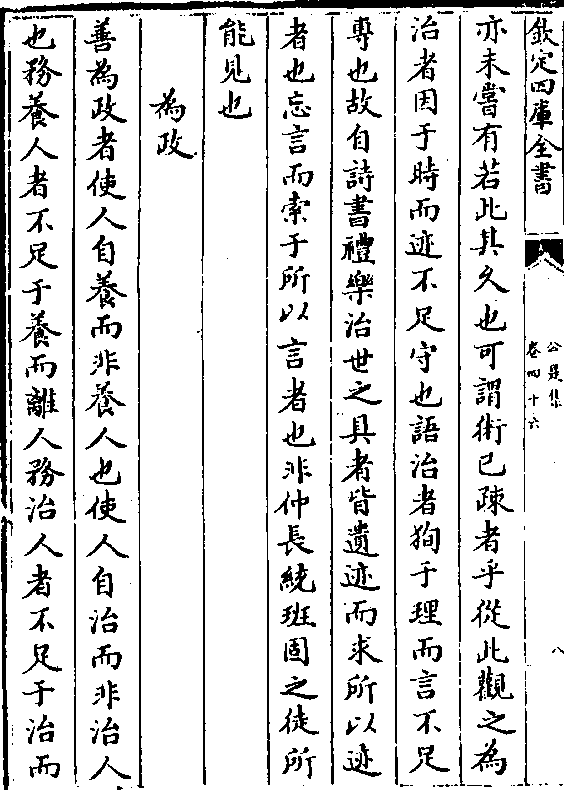 欽定四庫全書
公是集
卷四十六
八
亦未嘗有若此其久也可謂術已疎者乎從此觀之為
治者因于時而迹不足守也語治者狥于理而言不足
專也故自詩書禮樂治世之具者皆遺迹而求所以迹
者也忘言而索于所以言者也非仲長統班固之徒所
能見也
為政
善為政者使人自養而非養人也使人自治而非治人
也務養人者不足于養而離人務治人者不足于治而